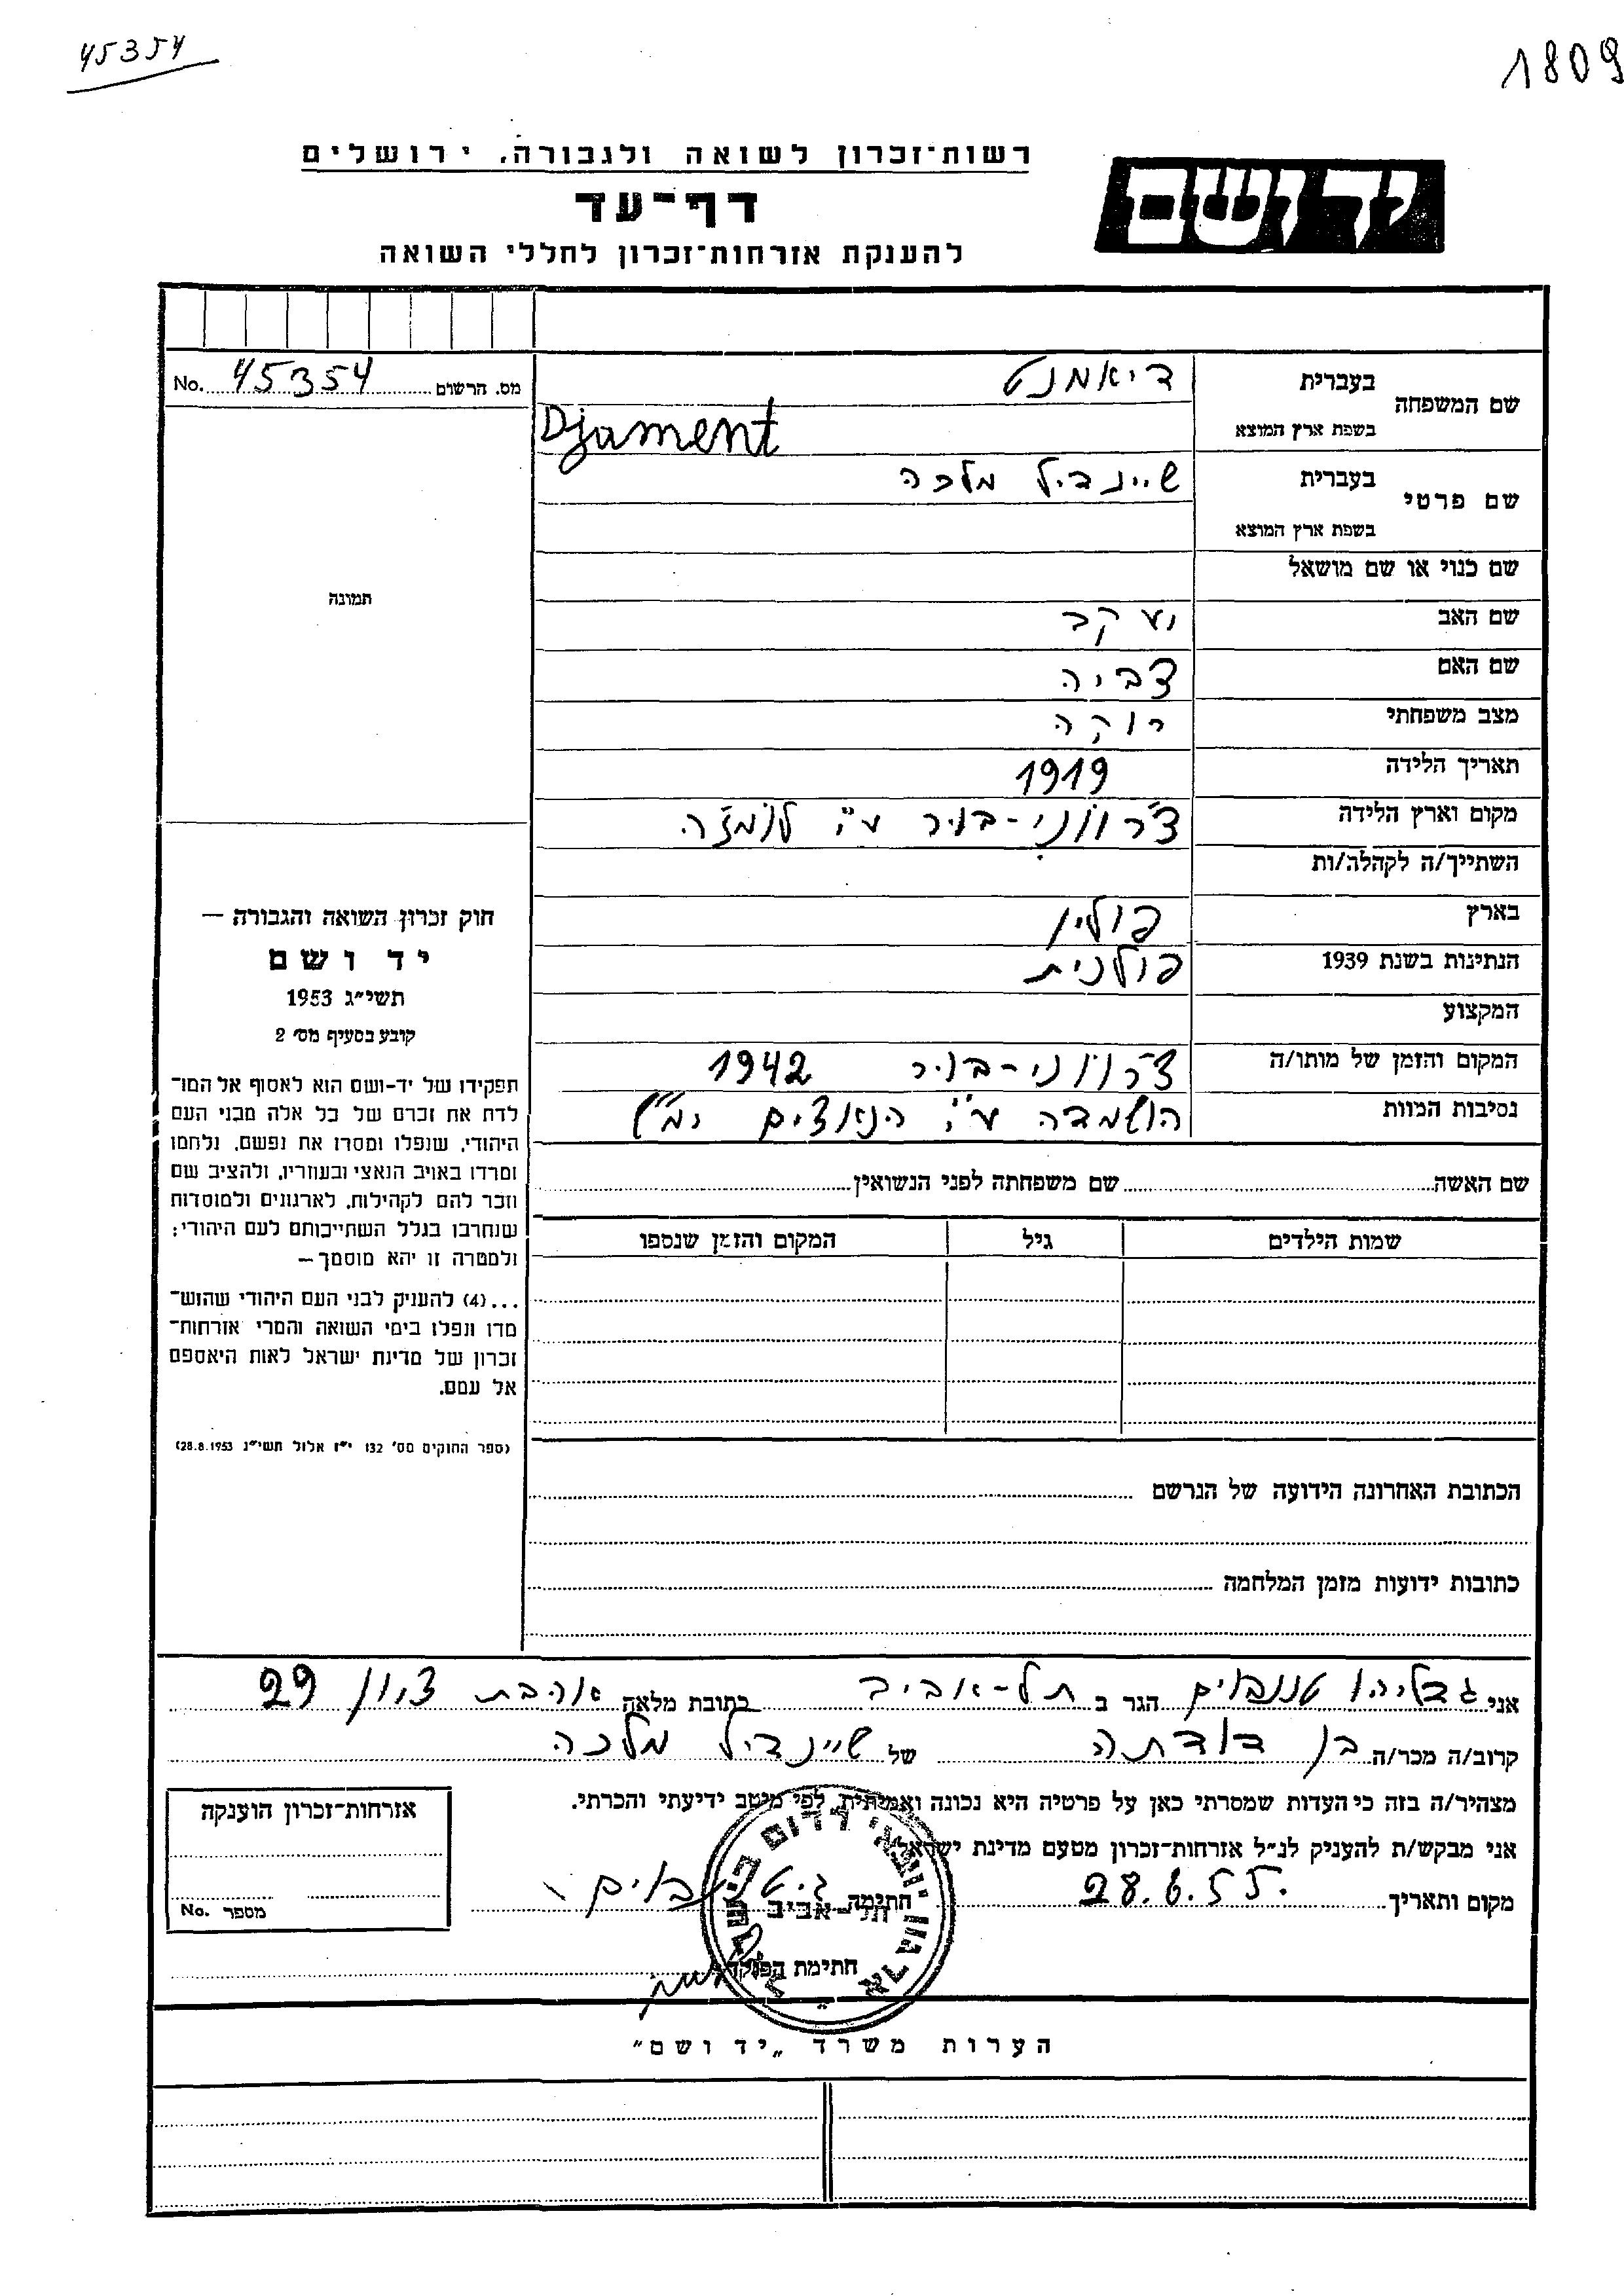 45354
1809
רשות־זכרון לשואה ולגבורה, ירושלים
יד ושם
דף־עד
להענקת אזרחות־זכרון לחללי השואה
מס. הרשום 45354 No.
שם המשפחה
בעברית דיאמנט
בשפת ארץ המוצא Djament
שם פרטי
בעברית שיינדיל מלכה
בשפת ארץ המוצא
שם כנוי או שם מושאל
שם האב יעקב
שם האם צביה
מצב משפחתי רוקה
תאריך הלידה 1919
מקום וארץ הלידה צ'רווני-בור ע"י לומז'ה
השתייך/ה לקהלה/ות
בארץ פולין
הנתינות בשנת 1939 פולנית
המקצוע
המקום והזמן של מותו/ה צ'רווני-בור 1942
נסיבות המוות הושמדה ע"י הנאצים ימ"ש
תמונה
חוק זכרון השואה והגבורה —
יד ושם
תשי״ג 1953
קובע בסעיף מס׳ 2
תפקידו של יד-ושם הוא לאסוף אל המו־
לדת את זכרם של כל אלה מבני העם
היהודי, שנפלו ומסרו את נפשם, נלחמו
ומרדו באויב הנאצי ובעוזריו, ולהציב שם
וזכר להם לקהילות, לארגונים ולמוסדות
שנחרבו בגלל השתייכותם לעם היהודי;
ולמטרה זו יהא מוסמך —
...(4) להעניק לבני העם היהודי שהוש־
מדו ונפלו בימי השואה והמרי אזרחות־
זכרון של מדינת ישראל לאות היאספם
אל עמם.
(ספר החוקים מס׳ 132 י״ז אלול תשי״ג 28.8.1953)
שם האשה שם משפחתה לפני הנשואין
שמות הילדים גיל המקום והזמן שנספו
הכתובת האחרונה הידועה של הנרשם
כתובות ידועות מזמן המלחמה
אני גדליהו טננבוים הגר ב תל-אביב כתובת מלאה אהבת ציון 29
קרוב/ה מכר/ה בן דודתה של שיינדיל מלכה
מצהיר/ה בזה כי העדות שמסרתי כאן על פרטיה היא נכונה ואמיתית, לפי מיטב ידיעתי והכרתי.
אני מבקש/ת להעניק לנ״ל אזרחות־זכרון מטעם מדינת ישראל
מקום ותאריך 28.6.55. חתימה ג. טננבוים
תל-אביב
חתימת הפוקד
אזרחות־זכרון הוענקה
מספר No.
הערות משרד „יד ושם״